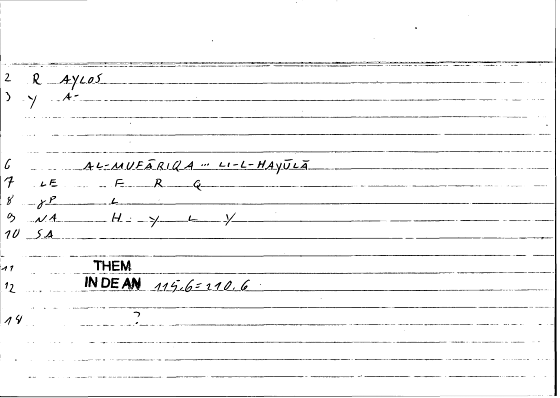 2 R AYLOS
3 Y A-
6 AL-MUFĀRIQA ... LI-L-HAYŪLĀ
7 LE F R Q
8 gP L
9 NA H y L Y
10 SA
11 THEM
12 IN DE AN 115,6=110,6
14 ?